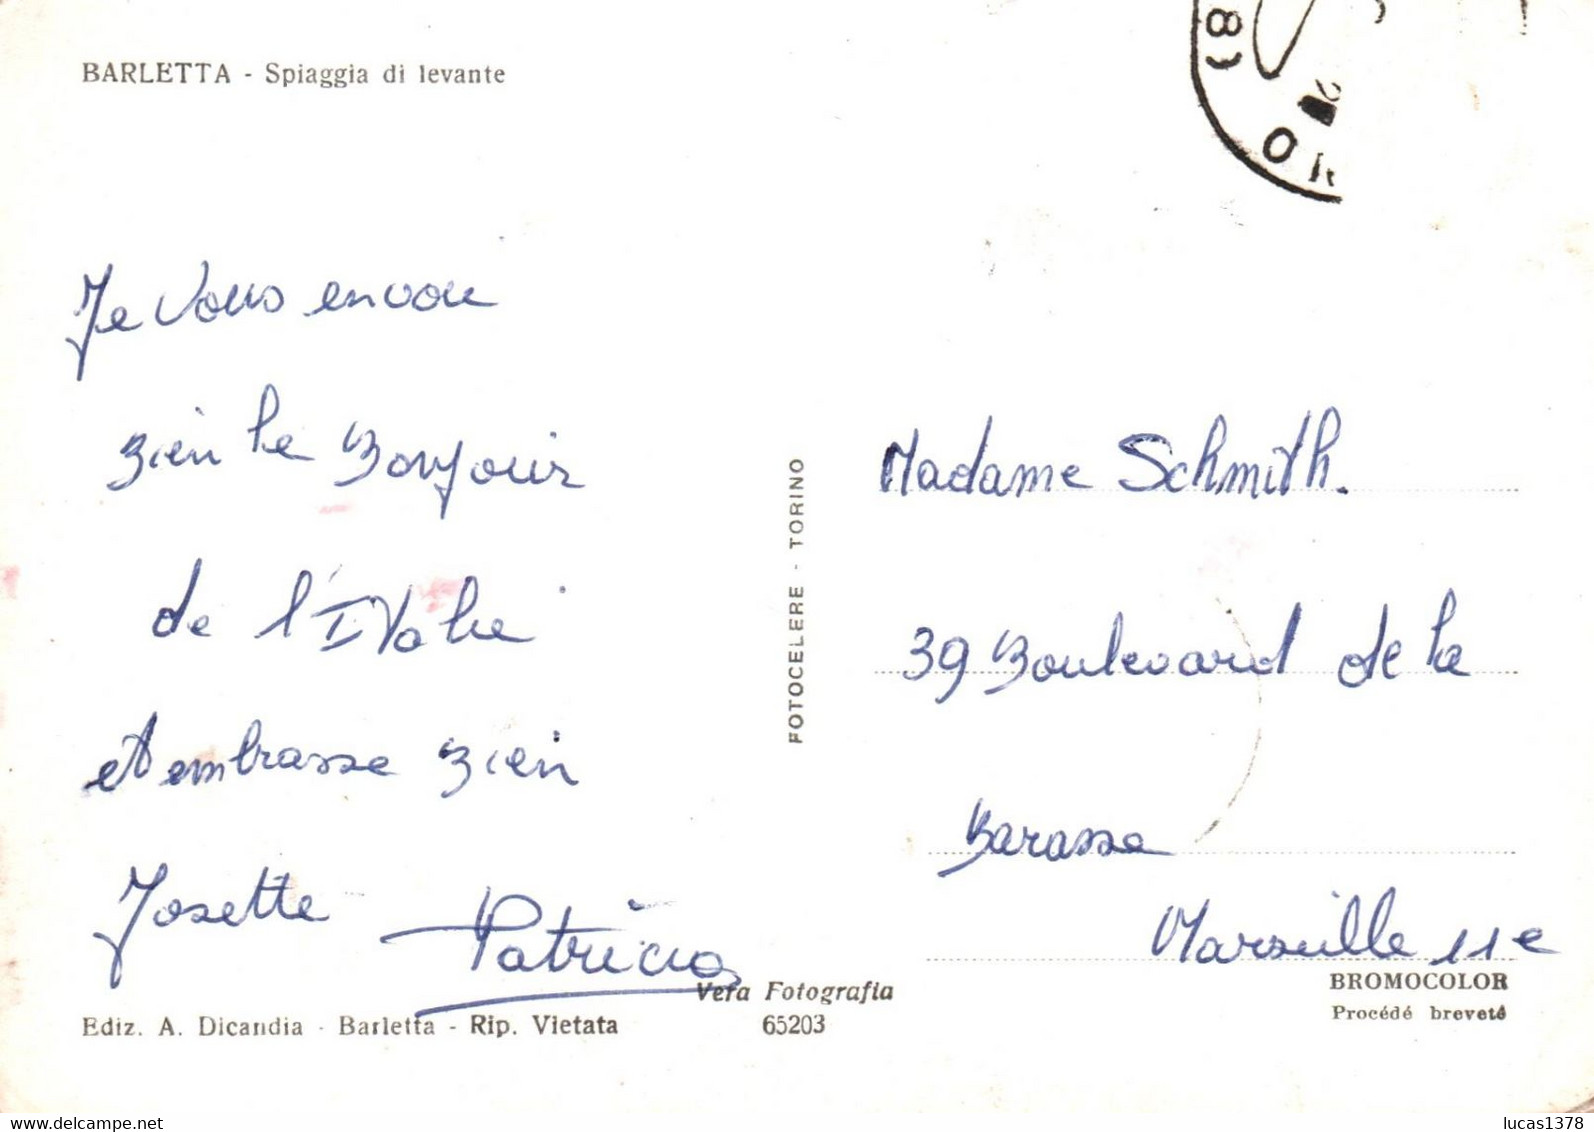 BARLETTA - Spiaggia di levante
8)
Je vous envoie
bien le Bonjour
de l'Italie
et embrasse bien
Josette Patricia
Madame Schmith.
39 Boulevard de la
Barasse
Marseille 11e
FOTOCELERE - TORINO
Vera Fotografia
65203
Ediz. A. Dicandia - Barletta - Rip. Vietata
BROMOCOLOR
Procédé breveté
www.delcampe.net
lucas1378